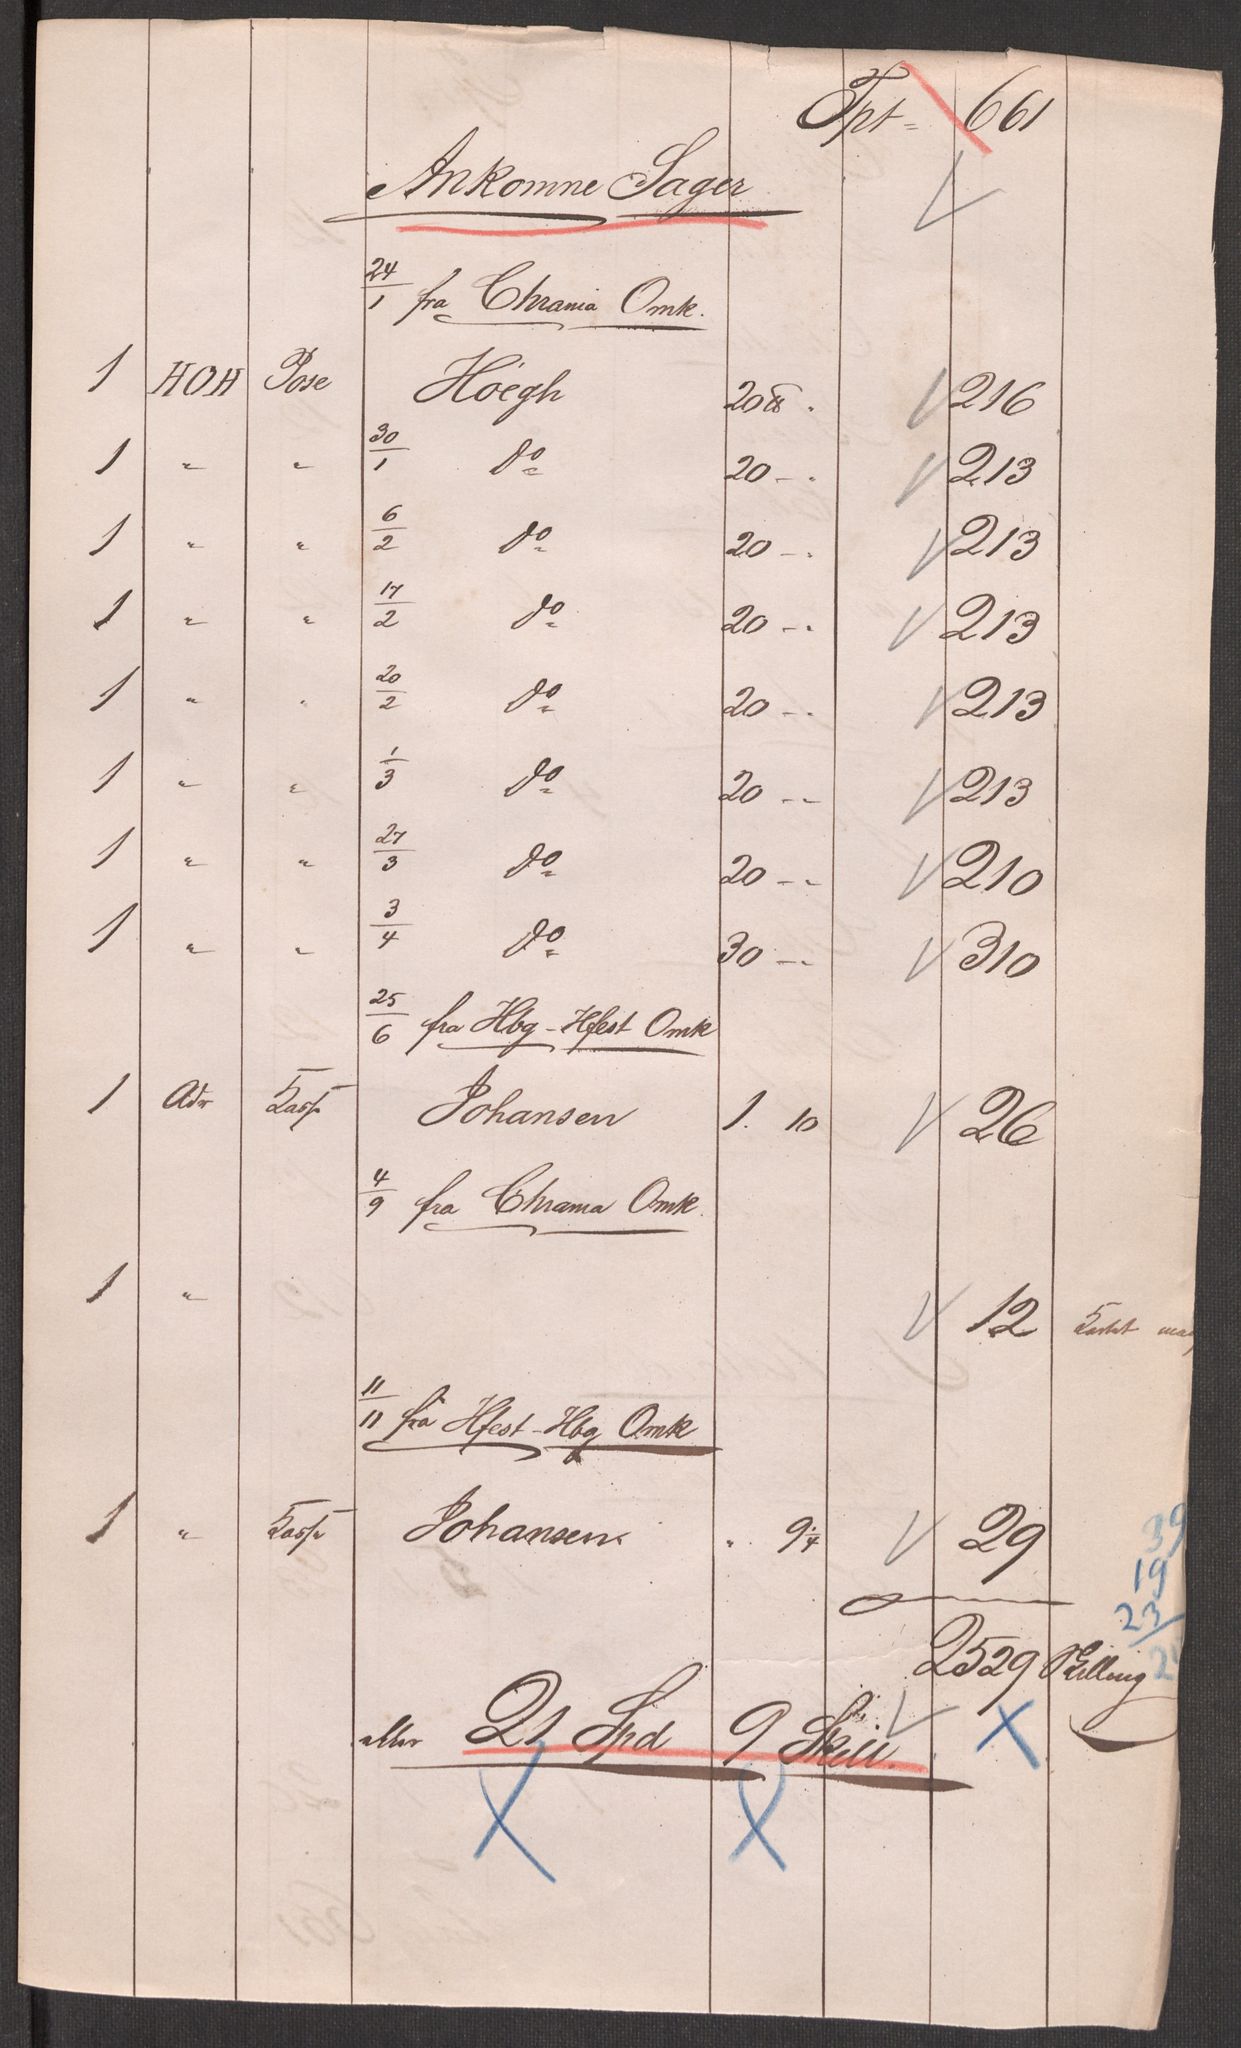 Tpt = 661
Ankomne Sager
24/1 fra Chrania Omk.
1 HOH Pose Höegh 20 ℔ . 216
1 " " 30/1 do 20 - . 213
1 " " 6/2 do 20 - . 213
1 " " 17/2 do 20 - . 213
1 " " 20/2 do 20 - . 213
1 " " 1/3 do 20 - - 213
1 " " 27/3 do 20 - - 210
1 " " 3/4 do 30 - - 310
25/6 fra Hbg - Hfest Omk
1 Adr Kasse Johansen 1. 10 26
4/9 fra Chrania Omk.
1 " 12
11/11 fra Hfest - Hbg Omk
1 " Kasse Johansen " 9 1/4 29
39
19
23
2529 Skilling
eller 21 Spd 9 Skill.